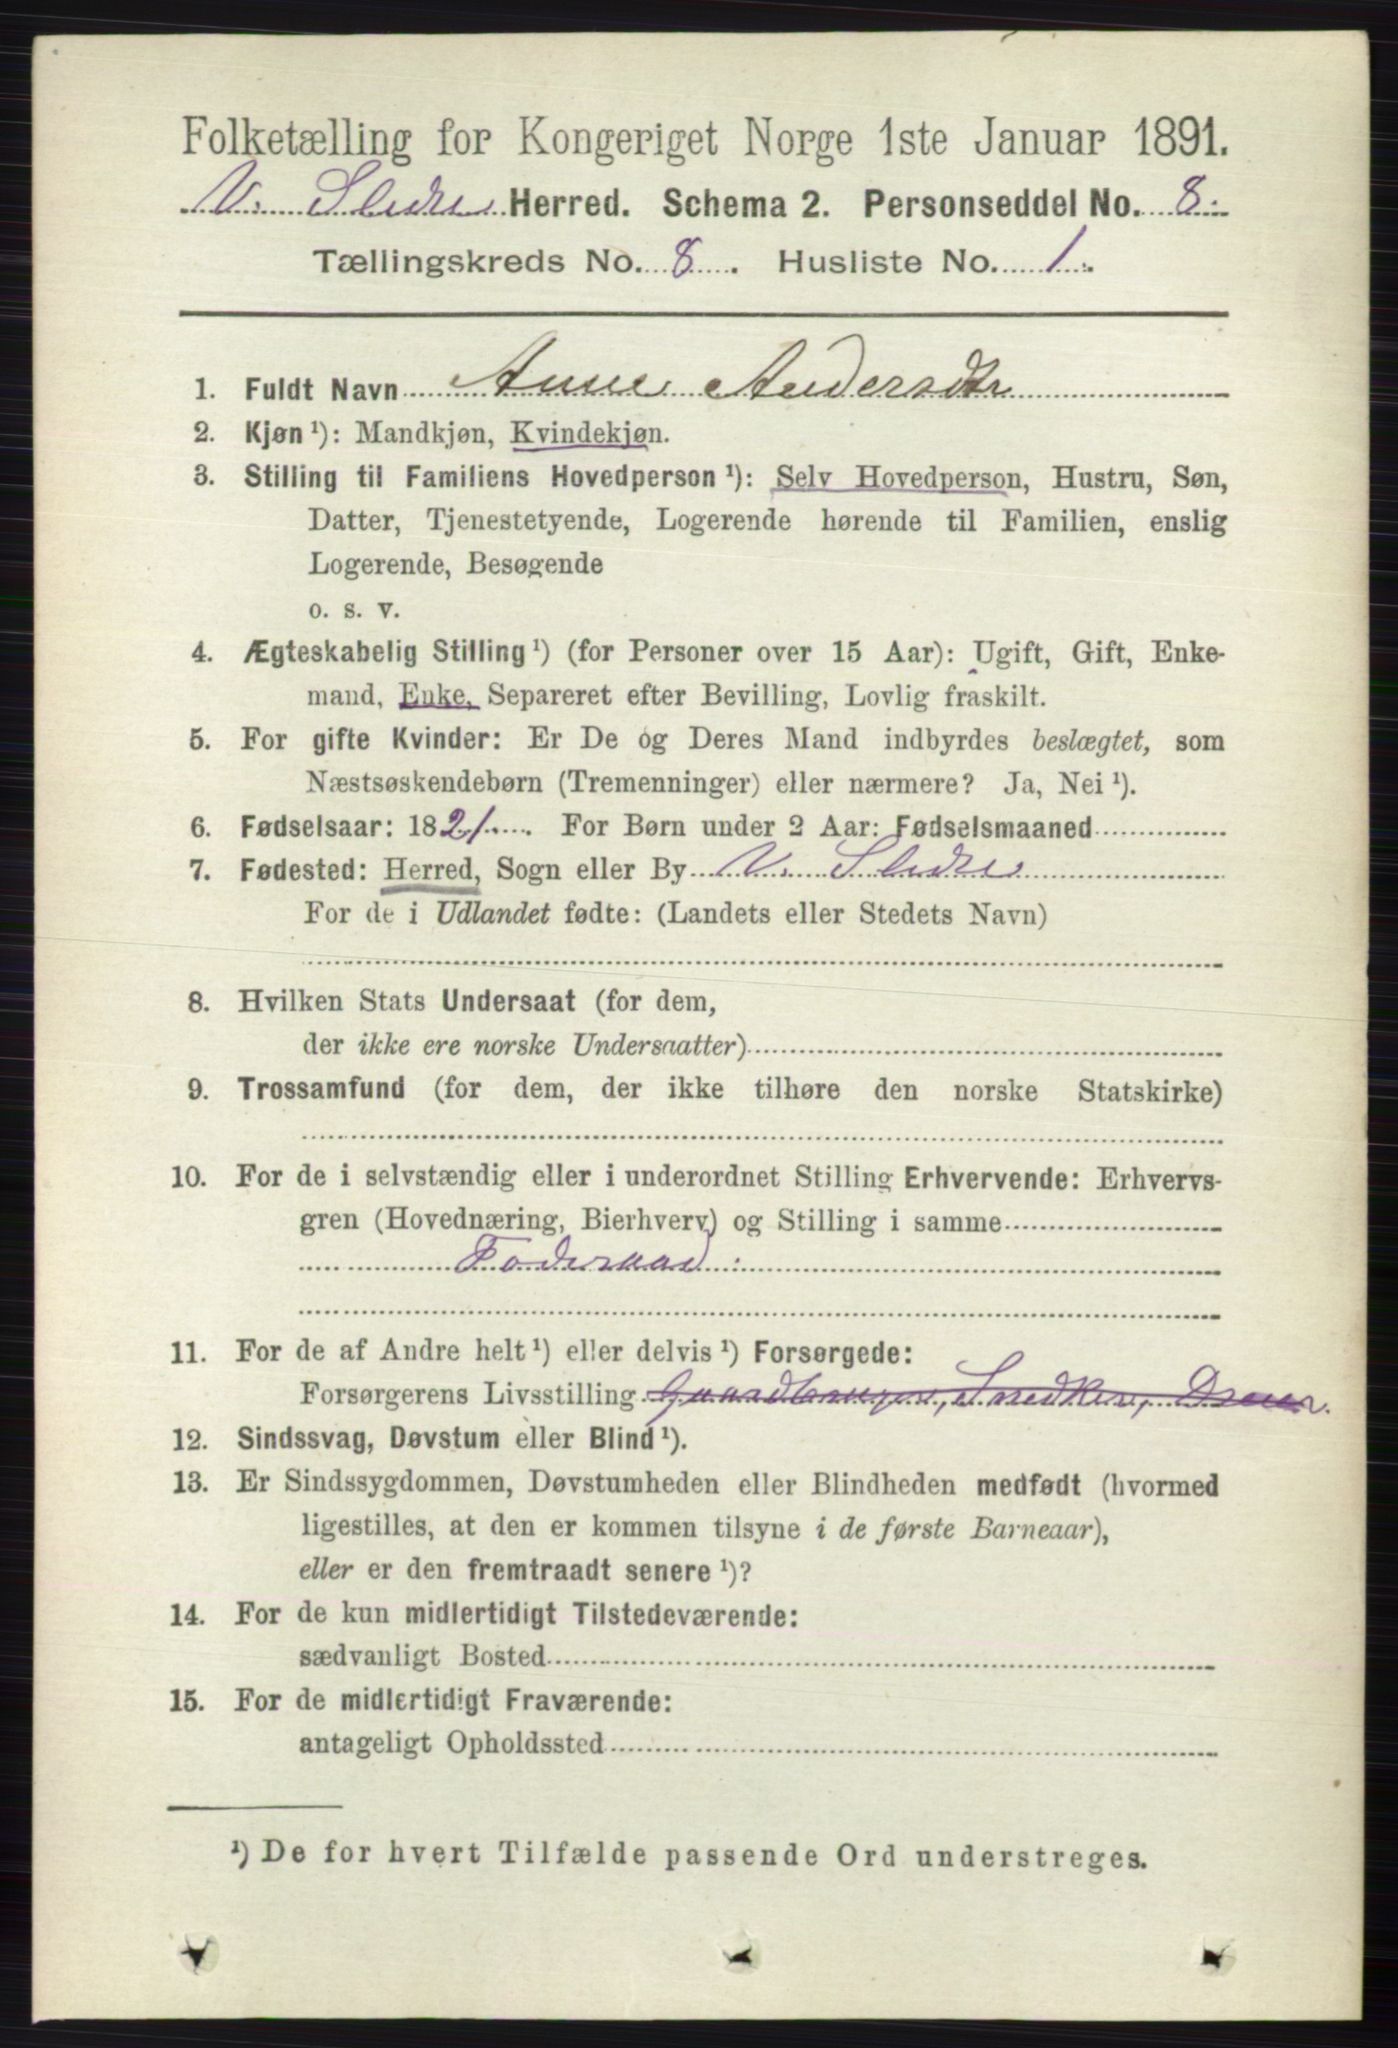 Folketælling for Kongeriget Norge 1ste Januar 1891.
V. Slidre Herred. Schema 2. Personseddel No. 8
Tællingskreds No. 8. Husliste No. 1.
1. Fuldt Navn Anne Andersdtr
2. Kjøn ¹): Mandkjøn, Kvindekjøn.
3. Stilling til Familiens Hovedperson ¹): Selv Hovedperson, Hustru, Søn,
Datter, Tjenestetyende, Logerende hørende til Familien, enslig
Logerende, Besøgende
o. s. v.
4. Ægteskabelig Stilling ¹) (for Personer over 15 Aar): Ugift, Gift, Enke-
mand, Enke, Separeret efter Bevilling, Lovlig fraskilt.
5. For gifte Kvinder: Er De og Deres Mand indbyrdes beslægtet, som
Næstsøskendebørn (Tremenninger) eller nærmere? Ja, Nei ¹).
6. Fødselsaar: 1821. For Børn under 2 Aar: Fødselsmaaned
7. Fødested: Herred, Sogn eller By V. Slidre
For de i Udlandet fødte: (Landets eller Stedets Navn)
8. Hvilken Stats Undersaat (for dem,
der ikke ere norske Undersaatter)
9. Trossamfund (for dem, der ikke tilhøre den norske Statskirke)
10. For de i selvstændig eller i underordnet Stilling Erhvervende: Erhvervs-
gren (Hovednæring, Bierhverv) og Stilling i samme
Foderaad
11. For de af Andre helt ¹) eller delvis ¹) Forsørgede:
Forsørgerens Livsstilling Gaardbruger, Snedker, Dreier
12. Sindssvag, Døvstum eller Blind ¹).
13. Er Sindssygdommen, Døvstumheden eller Blindheden medfødt (hvormed
ligestilles, at den er kommen tilsyne i de første Barneaar),
eller er den fremtraadt senere ¹)?
14. For de kun midlertidigt Tilstedeværende:
sædvanligt Bosted
15. For de midlertidigt Fraværende:
antageligt Opholdssted
¹) De for hvert Tilfælde passende Ord understreges.